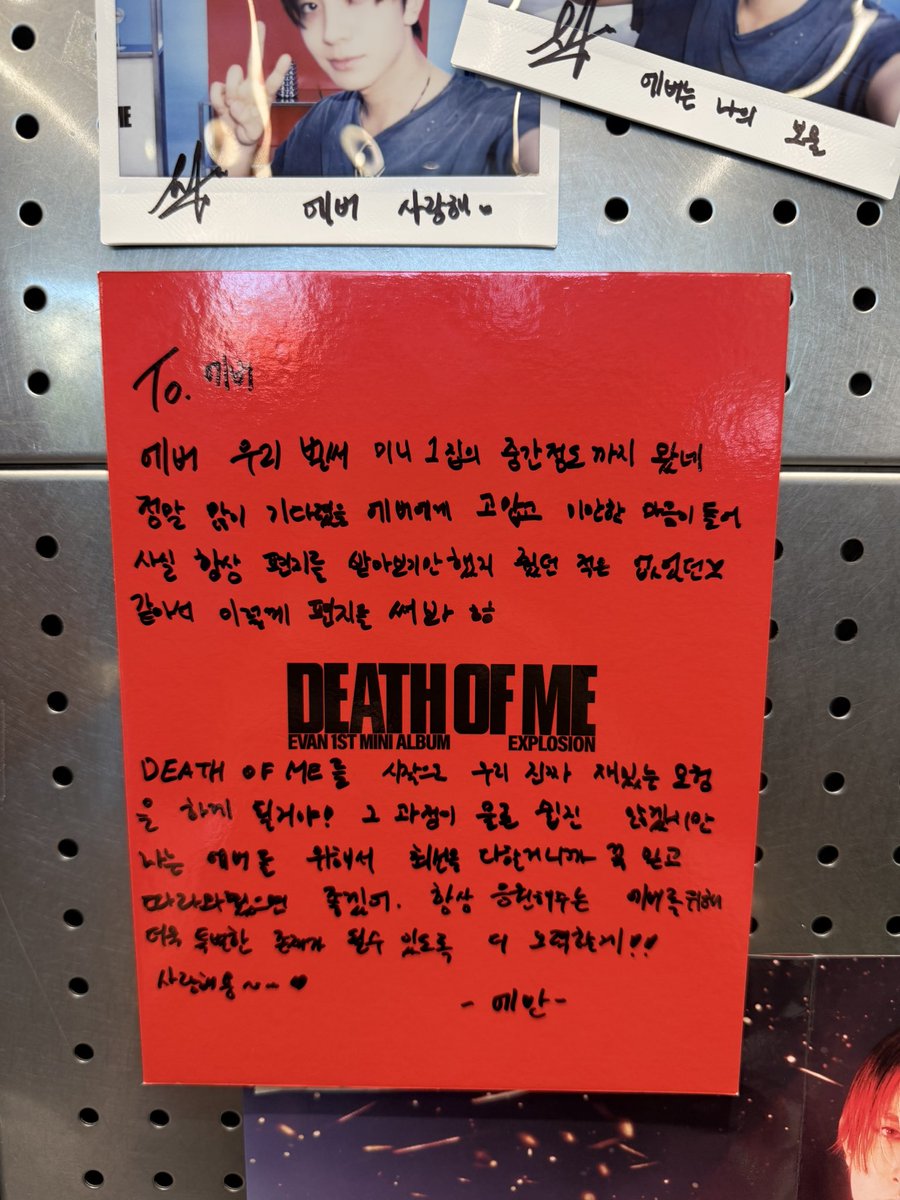 에버 사랑해♥
에버는 나의 보물
To. 에버
에버 우리 벌써 미니 1집의 중간점도까지 왔네
정말 많이 기다렸을 에버에게 고맙고 미안한 마음이 들어
사실 항상 편지를 받아보기만 했지 줬던 적은 없었던것
같아서 이렇게 편지를 써봐 ㅎㅎ
DEATH OF ME
EVAN 1ST MINI ALBUM EXPLOSION
DEATH OF ME를 시작으로 우리 진짜 재밌는 모험
을 하게 될거야! 그 과정이 물론 쉽진 않겠지만
나는 에버를 위해서 최선을 다할거니까 꼭 믿고
따라와줬으면 좋겠어. 항상 응원해주는 에버를 위해
더욱 특별한 존재가 될수 있도록 더 노력할게!!
사랑해용~~ ♥
- 에반 -